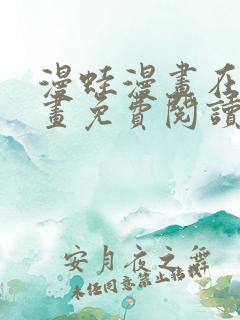 漫蛙漫畫在
畫免費閱讀
安月夜之舞
未經同意禁止轉載